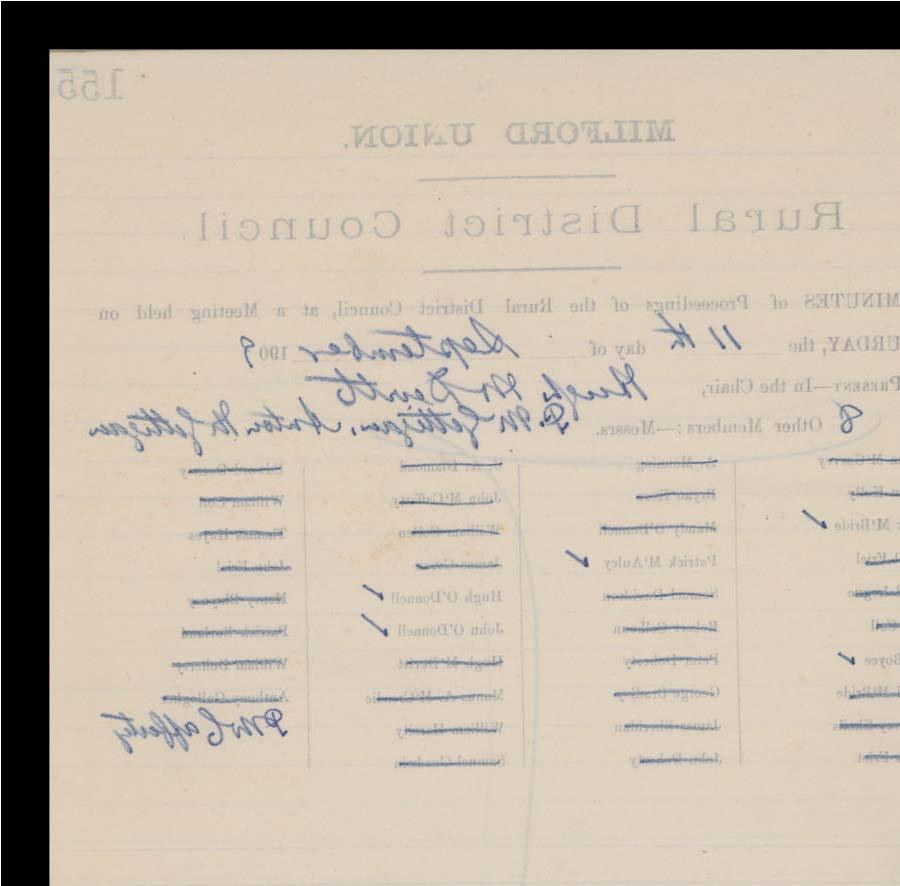 155
MILFORD UNION.
Rural District Council.
MINUTES of Proceedings of the Rural District Council, at a Meeting held on
URDAY, the 11th day of September 1909
PRESENT—In the Chair, Hugh McDevitt
8 Other Members:—Messrs. P. McGettigan, Anton McGettigan
M'Garvey A. Manning J. A. Diamond
Kelly Bryan John M'Cafferty William Coll
M'Bride Mandy O'Donnell William Thomas Hayes
Friel Patrick M'Auley James John Friel
Samuel Davidson Hugh O'Donnell Henry
Coll Robert John O'Donnell Patrick
Boyce Peter Doherty Hugh M'Devitt William Doherty
M'Bride George Bradley Manus A. Anthony Gallagher
Shiels James Sheridan William P McCafferty
Friel John Doherty Samuel